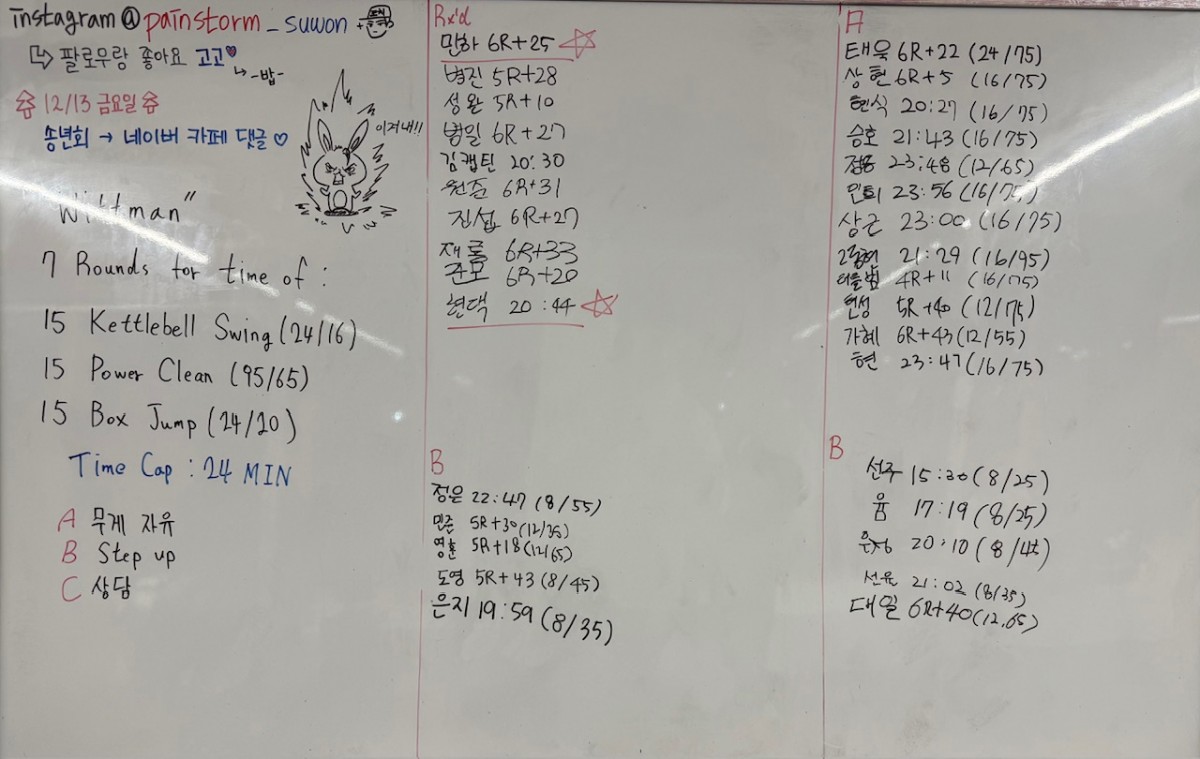 instagram @ painstorm _ suwon
팔로우랑 좋아요 고고
-밥-
12/13 금요일
송년회 → 네이버 카페 댓글 ♡
이겨내!!
"Wittman"
7 Rounds for time of :
15 Kettlebell Swing (24/16)
15 Power Clean (95/65)
15 Box Jump (24/20)
Time Cap : 24 MIN
A 무게 자유
B Step up
C 상담
Rx'd
민하 6R+25
병진 5R+28
성완 5R+10
병일 6R+27
김캡틴 20:30
원준 6R+31
진섭 6R+27
재룡 6R+33
준모 6R+20
현택 20:44
B
정은 22:47 (8/55)
민준 5R+30 (12/35)
영훈 5R+18 (12/65)
도영 5R+43 (8/45)
은지 19:59 (8/35)
A
태욱 6R+22 (24/75)
상현 6R+5 (16/75)
현식 20:27 (16/75)
승호 21:43 (16/75)
23:48 (12/65)
민희 23:56 (16/75)
상근 23:00 (16/75)
21:29 (16/95)
4R+11 (16/75)
현성 5R+40 (12/75)
가혜 6R+43 (12/55)
현 23:47 (16/75)
B
선주 15:30 (8/25)
윰 17:19 (8/25)
20:10
선윤 21:02 (8/35)
대일 6R+40 (12,65)